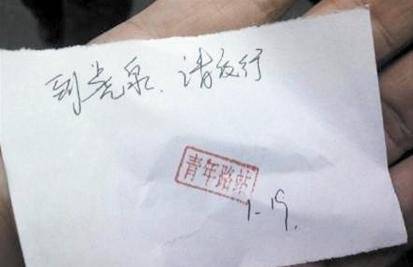 到光泉、请放行
青年路站
1-19.